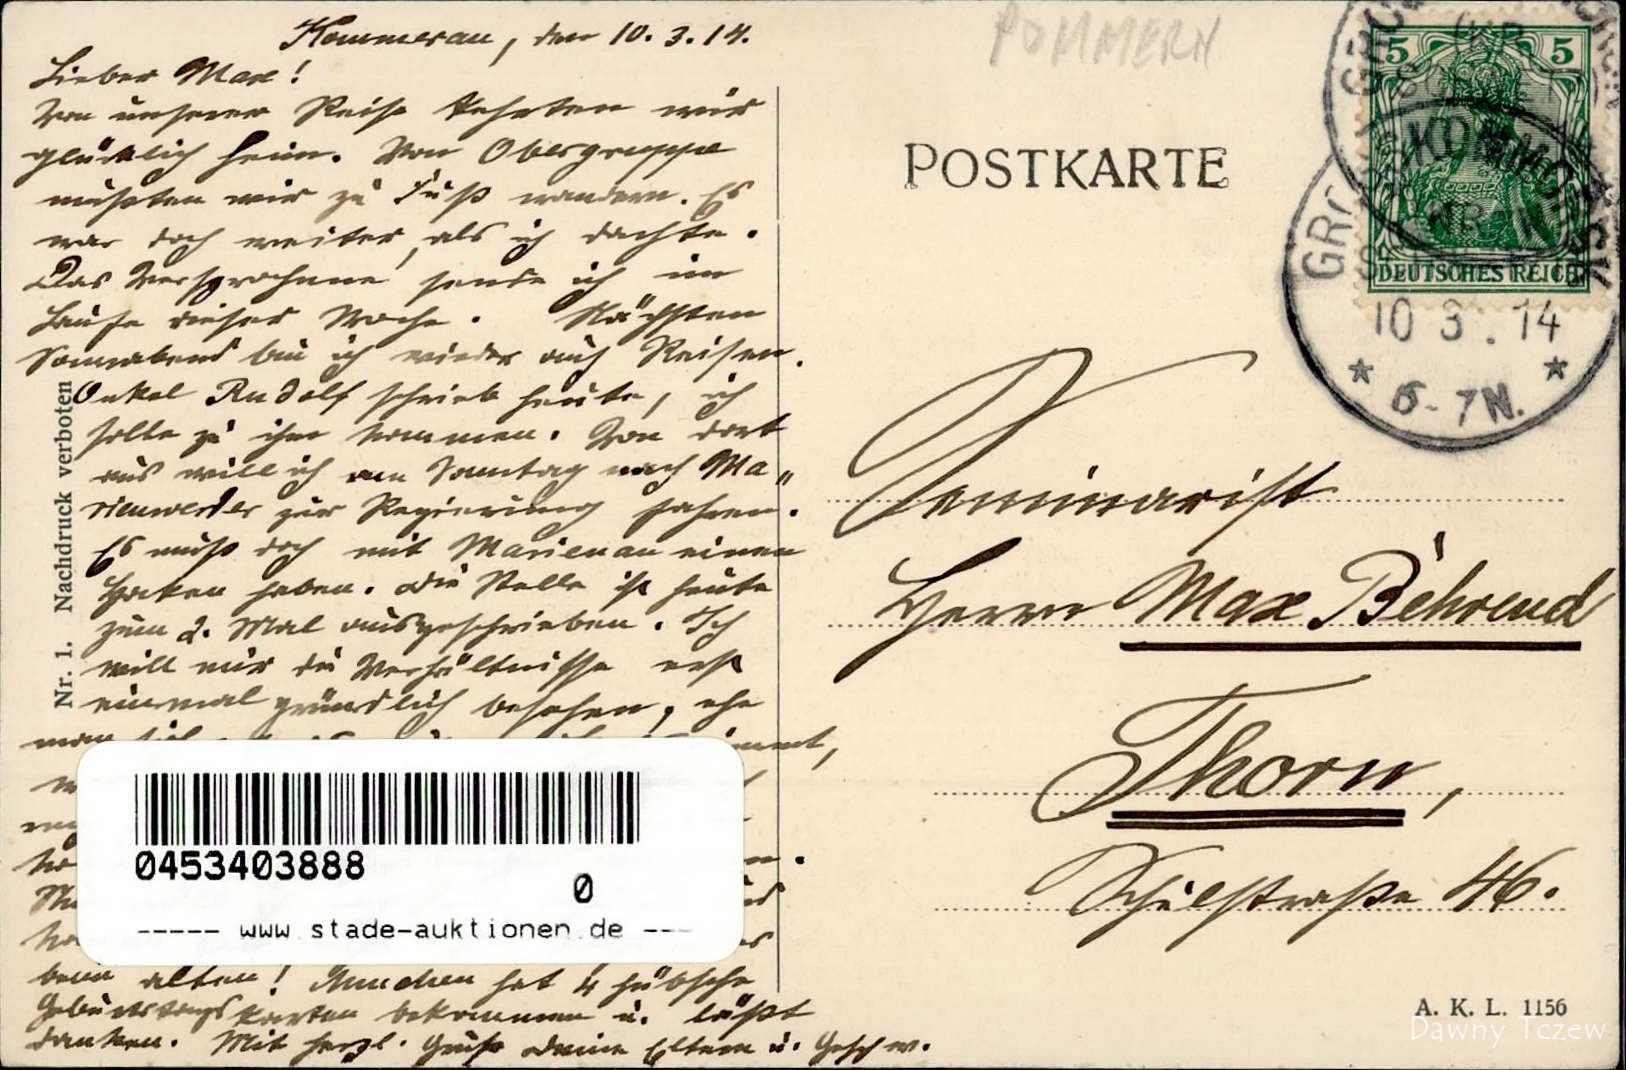 Kommerau, den 10. 3. 14.
Lieber Max!
Von unserer Reise kehrten wir
glücklich heim. Von Obergruppe
mußten wir zu Fuß wandern. Es
war doch weiter, als ich dachte.
Das Versprochene sende ich im
Laufe dieser Woche. Nächsten
Sonnabend bin ich wieder auf Reisen.
Onkel Rudolf schrieb heute, ich
solle zu ihm kommen. Von dort
aus will ich am Sonntag nach Ma„
rienwerder zur Regierung fahren.
Es muß doch mit Marienau einen
Haken haben. Die Stelle ist heute
zum 2. Mal ausgeschrieben. Ich
will mir die Verhältnisse erst
einmal gründlich besehen, ehe
man sich
beim alten! Annchen hat 4 hübsche
Geburtstagskarten bekommen u. läßt
danken. Mit herzl. Gruß Deine Eltern u. Geschw.
Nr. 1. Nachdruck verboten
0453403888
0
----- www.stade-auktionen.de ---
POMMERN
POSTKARTE
5 5
DEUTSCHES REICH
KOMMO
10 3. 14
* 6-7N. *
Seminarist
Herrn Max Behrend
Thorn,
Schulstraße 46.
A. K. L. 1156
Dawny Tczew